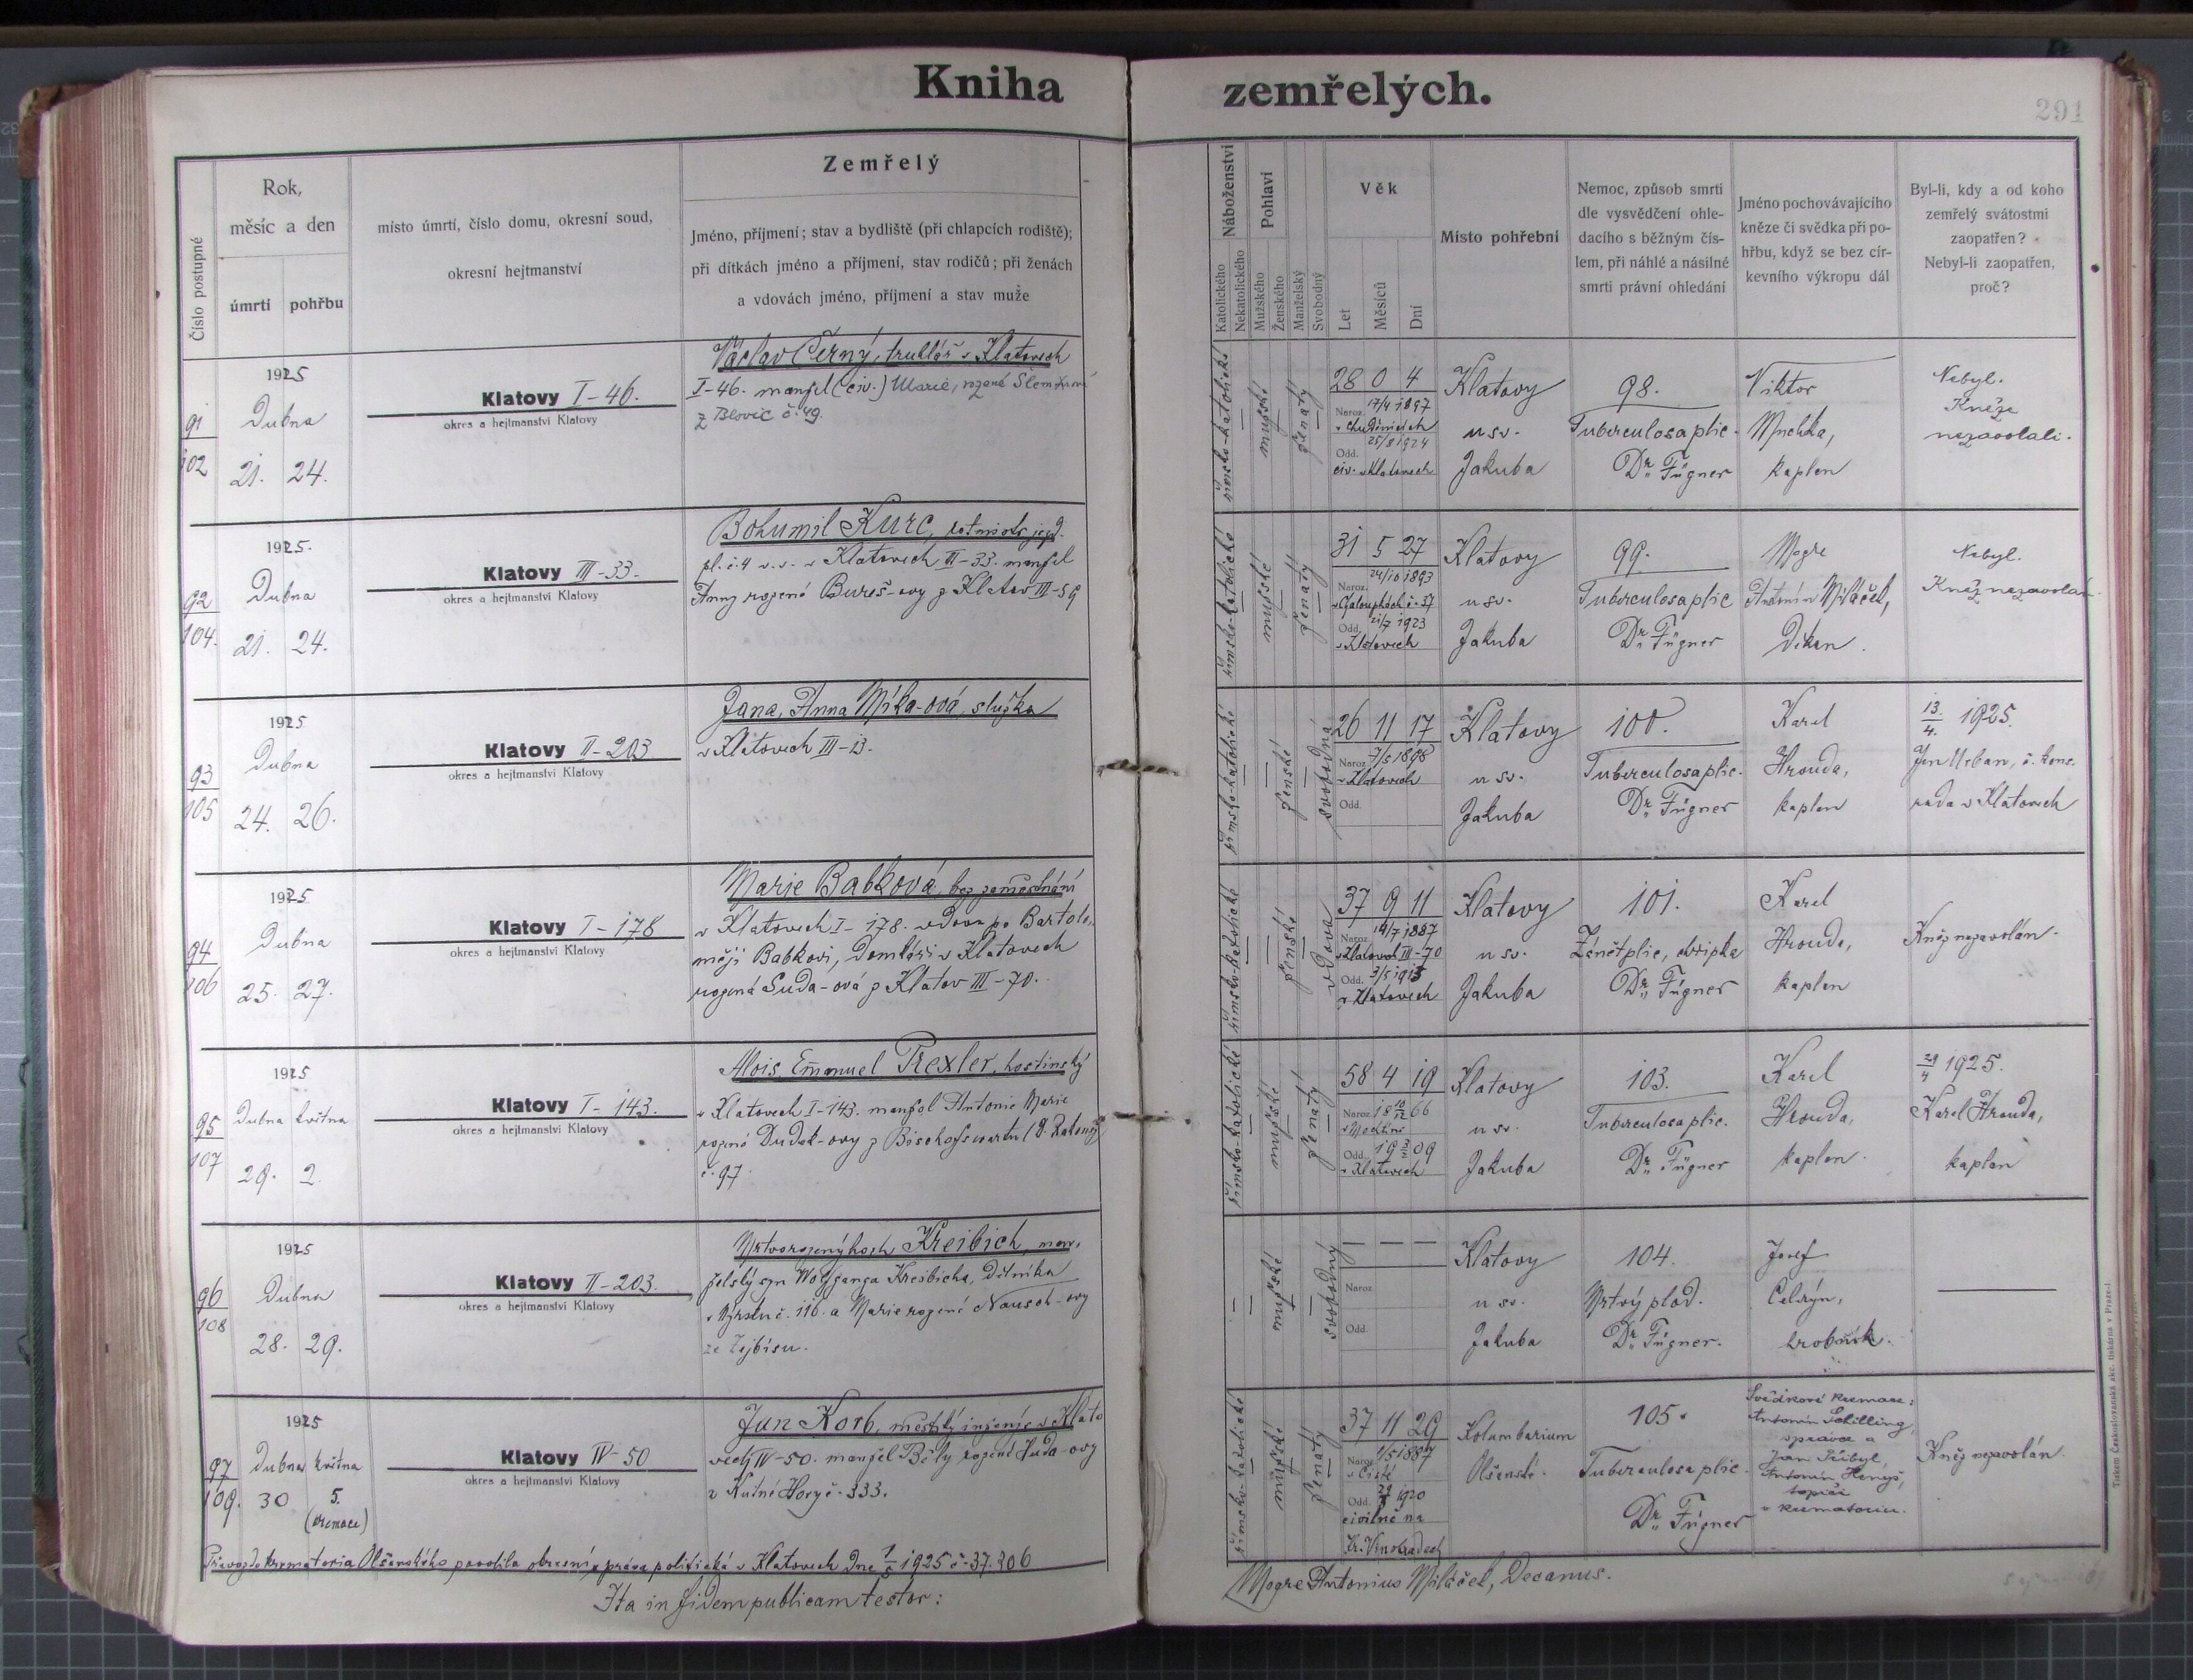 Kniha zemřelých.
291
Číslo postupné
Rok,
měsíc a den
úmrtí pohřbu
místo úmrtí, číslo domu, okresní soud,
okresní hejtmanství
Zemřelý
Jméno, příjmení; stav a bydliště (při chlapcích rodiště);
při dítkách jméno a příjmení, stav rodičů; při ženách
a vdovách jméno, příjmení a stav muže
Náboženství
Katolického
Nekatolického
Pohlaví
Mužského
Ženského
Manželský
Svobodný
Věk
Let
Měsíců
Dní
Místo pohřební
Nemoc, způsob smrti
dle vysvědčení ohle-
dacího s běžným čís-
lem, při náhlé a násilné
smrti právní ohledání
Jméno pochovávajícího
kněze či svědka při po-
hřbu, když se bez cír-
kevního výkropu dál
Byl-li, kdy a od koho
zemřelý svátostmi
zaopatřen?
Nebyl-li zaopatřen,
proč?
91
102
1925
Dubna
21. 24.
Klatovy I-46.
okres a hejtmanství Klatovy
Václav Černý, truhlář v Klatovech
I-46. manžel (civ.) Marie, rozené
z Blovic č. 49.
římsko-katolické
mužské
ženatý
28 0 4
Naroz. 17/4 1897
v Chudenicích
25/8 1924
Odd.
civ. v Klatovech
Klatovy
u sv.
Jakuba
98.
Tuberculosa plic.
Dr. Fügner
Viktor
kaplan
Nebyl.
Kněze
nezavolali.
92
104.
1925.
Dubna
21. 24.
Klatovy III-33.
okres a hejtmanství Klatovy
Bohumil Kurc, rotmistr jezd.
pl. č. 4 v.v. v Klatovech III-33. manžel
Anny rozené Bureš-ovy z Klatov III-59
římsko-katolické
mužské
ženatý
31 5 27
24/10 1893
Naroz.
č. 37
21/7 1923
Odd.
v Klatovech
Klatovy
u sv.
Jakuba
99.
Tuberculosa plic
Dr. Fügner
Msgre
Antonín Miláček,
Děkan.
Nebyl.
Kněz nezavolán.
93
105
1925
Dubna
24. 26.
Klatovy II-203
okres a hejtmanství Klatovy
Jana, Anna Míka-ová, služka
v Klatovech III-13.
římsko-katolické
ženské
svobodná
26 11 17
7/5 1898
Naroz.
v Klatovech
Odd.
Klatovy
u sv.
Jakuba
100.
Tuberculosa plic.
Dr. Fügner
Karel
Hrouda,
kaplan
13./4. 1925.
Jan Urban, b. kons.
rada v Klatovech
94
106
1925.
Dubna
25. 27.
Klatovy I-178
okres a hejtmanství Klatovy
Marie Babková, bez zaměstnání
v Klatovech I-178. vdova po Bartolo-
měji Babkovi, domkáři v Klatovech
rozená Suda-ová z Klatov III-70.
římsko-katolické
ženské
vdova
37 9 11
14/7 1887
Naroz.
v Klatovech III-70
Odd. 3/5 1915
v Klatovech
Klatovy
u sv.
Jakuba
101.
Zánět plic, chřipka
Dr. Fügner
Karel
Hrouda,
kaplan
Kněz nezavolán.
95
107
1925
Dubna května
29. 2.
Klatovy I-143.
okres a hejtmanství Klatovy
Alois, Emanuel Trexler, hostinský
v Klatovech I-143. manžel Antonie Marie
rozené Dudek-ovy z Bischofswartu (D. Rakousy)
č. 97
římsko-katolické
mužské
ženatý
58 4 19
Naroz. 18 10/12 66
Odd. 19 09
v Klatovech
Klatovy
u sv.
Jakuba
103.
Tuberculosa plic.
Dr. Fügner
Karel
Hrouda,
kaplan.
29/4 1925.
Karel Hrouda,
kaplan
96
108
1925
Dubna
28. 29.
Klatovy II-203.
okres a hejtmanství Klatovy
Mrtvorozený hoch Kreibich, man-
želský syn Wolfganga Kreibicha, dělníka
v Nýrsku č. 116. a Marie rozené Nausch-ovy
ze Zejbišu.
mužské
svobodný
— — —
Naroz.
Odd.
Klatovy
u sv.
Jakuba
104.
Mrtvý plod.
Dr. Fügner.
Josef
Celrýn,
hrobník.
97
109.
1925
Dubna května
30 5.
(kremace)
Klatovy IV-50
okres a hejtmanství Klatovy
Jan Korb, městský inženýr v Klato
vech IV-50. manžel Běly rozené Huda-ovy
z Kutné Hory č. 333.
římsko-katolické
mužské
ženatý
37 11 29
1/5 1887
Naroz.
Odd. 1920
civilně na
Kr. Vinohradech
Kolumbarium
Olšanské.
105.
Tuberculosa plic.
Dr. Fügner
Svědkové kremace:
Antonín Schilling,
správce a
Jan Přibyl,
Antonín Henyš,
topiči
v krematoriu.
Kněz nezavolán.
Převoz do krematoria Olšanského povolila okresní správa politická v Klatovech dne 1/5 1925 č. 37.206
Ita in fidem publicam testor:
Msgre Antonius Miláček, Decanus.
Tiskem Českoslovanská akc. tiskárna v Praze-I